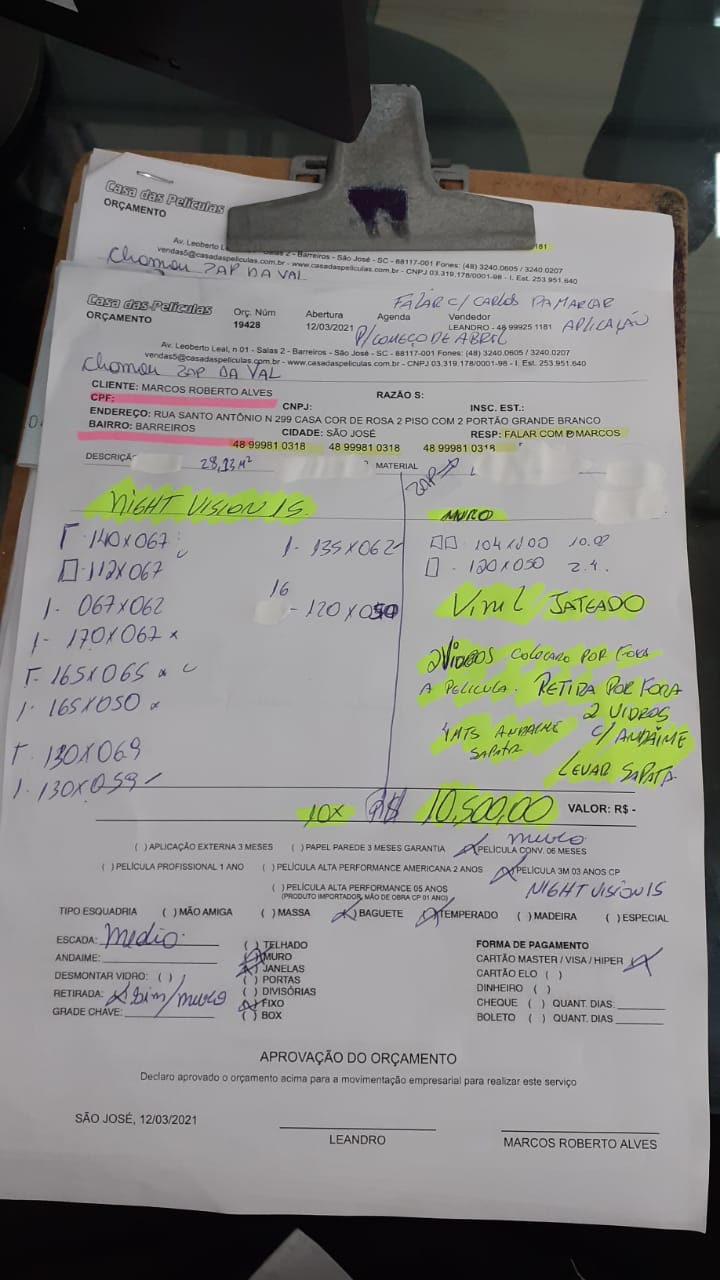 Casa das Películas
ORÇAMENTO
181
Av. Leoberto L 2 - Barreiros - São José - SC - 88117-001 Fones: (48) 3240.0605 / 3240.0207
vendas5@casadaspeliculas.com.br - www.casadaspeliculas.com.br - CNPJ 03.319.178/0001-98 - I. Est. 253.951.640
Chamou ZAP DA VAL
Casa das Películas
ORÇAMENTO
Orç. Núm
19428
Abertura
12/03/2021
Agenda
FALAR C/ CARLOS PA MARCAR
APLICAÇÃO
P/ COMEÇO DE ABRIL
Vendedor
LEANDRO - 48 99925 1181
Av. Leoberto Leal, n 01 - Salas 2 - Barreiros - São José - SC - 88117-001 Fones: (48) 3240.0605 / 3240.0207
vendas5@casadaspeliculas.com.br - www.casadaspeliculas.com.br - CNPJ 03.319.178/0001-98 - I. Est. 253.951.640
Chamou ZAP DA VAL
CLIENTE: MARCOS ROBERTO ALVES RAZÃO S:
CPF: CNPJ: INSC. EST.:
ENDEREÇO: RUA SANTO ANTÔNIO N 299 CASA COR DE ROSA 2 PISO COM 2 PORTÃO GRANDE BRANCO
BAIRRO: BARREIROS CIDADE: SÃO JOSÉ RESP: FALAR COM MARCOS
48 99981 0318 48 99981 0318 48 99981 0318
DESCRIÇÃ 28,93 M² MATERIAL ZAP
NIGHT VISION 15
140X067
112X067
067X062
170X067 x
165X065
165X050
130X069
130X059
135X062
16
- 120X050
MURO
104X100 10.00
120X050 2.4.
Vinil JATEADO
2 Vidros COLOCARO POR FORA
A PELICULA. RETIRA POR FORA
2 VIDROS
4MTS ANDAIME C/ ANDAIME
SAPATA
LEVAR SAPATA
10X R$ 10,500,00 VALOR: R$ -
muro
( ) APLICAÇÃO EXTERNA 3 MESES ( ) PAPEL PAREDE 3 MESES GARANTIA (X) PELÍCULA CONV. 06 MESES
( ) PELÍCULA PROFISSIONAL 1 ANO ( ) PELÍCULA ALTA PERFORMANCE AMERICANA 2 ANOS (X) PELÍCULA 3M 03 ANOS CP
( ) PELÍCULA ALTA PERFORMANCE 05 ANOS
(PRODUTO IMPORTADOR, MÃO DE OBRA CP 01 ANO)
NIGHT VISION 15
TIPO ESQUADRIA ( ) MÃO AMIGA ( ) MASSA (X) BAGUETE (X) TEMPERADO ( ) MADEIRA ( ) ESPECIAL
ESCADA: Medio
ANDAIME:
DESMONTAR VIDRO: ( )
RETIRADA: (X) Sim/muro
GRADE CHAVE:
( ) TELHADO
(X) MURO
(X) JANELAS
( ) PORTAS
( ) DIVISÓRIAS
(X) FIXO
( ) BOX
FORMA DE PAGAMENTO
CARTÃO MASTER / VISA / HIPER (X)
CARTÃO ELO ( )
DINHEIRO ( )
CHEQUE ( ) QUANT. DIAS:
BOLETO ( ) QUANT. DIAS
APROVAÇÃO DO ORÇAMENTO
Declaro aprovado o orçamento acima para a movimentação empresarial para realizar este serviço
SÃO JOSÉ, 12/03/2021
LEANDRO
MARCOS ROBERTO ALVES